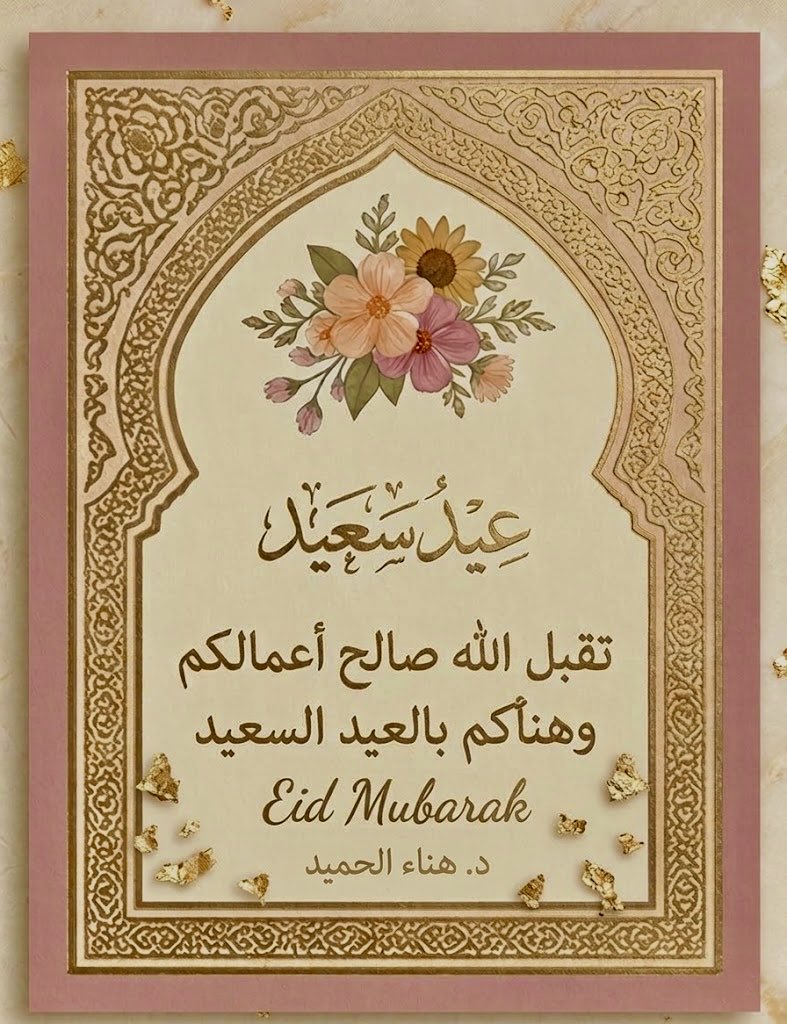 عِيْدُ سَعَيِد
تقبل الله صالح أعمالكم
وهنأكم بالعيد السعيد
Eid Mubarak
د. هناء الحميد